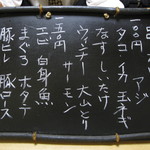 アジ
タコ イカ 玉ねぎ
なす しいたけ
ウィンナー 大山とり
一五〇円 サーモン
エビ 白身魚
まぐろ ホタテ
豚ヒレ 豚ロース